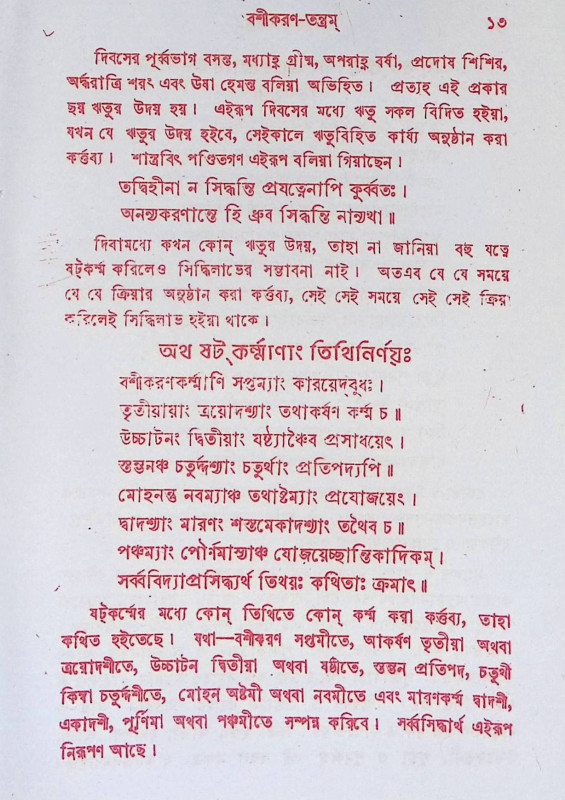 বশীকরণ-তন্ত্রম্ ১৩
দিবসের পূর্ব্বভাগ বসন্ত, মধ্যাহ্ন গ্রীষ্ম, অপরাহ্ন বর্ষা, প্রদোষ শিশির,
অর্দ্ধরাত্রি শরৎ এবং ঊষা হেমন্ত বলিয়া অভিহিত। প্রত্যহ এই প্রকার
ছয় ঋতুর উদয় হয়। এইরূপ দিবসের মধ্যে ঋতু সকল বিদিত হইয়া,
যখন যে ঋতুর উদয় হইবে, সেইকালে ঋতুবিহিত কার্য্য অনুষ্ঠান করা
কর্ত্তব্য। শাস্ত্রবিৎ পণ্ডিতগণ এইরূপ বলিয়া গিয়াছেন।
তদ্বিহীনা ন সিদ্ধন্তি প্রযত্নেনাপি কুর্ব্বতঃ।
অনন্যকরণাস্তে হি ধ্রুব সিদ্ধন্তি নান্যথা॥
দিবামধ্যে কখন কোন্ ঋতুর উদয়, তাহা না জানিয়া বহু যত্নে
ষট্‌কর্ম্ম করিলেও সিদ্ধিলাভের সম্ভাবনা নাই। অতএব যে যে সময়ে
যে যে ক্রিয়ার অনুষ্ঠান করা কর্ত্তব্য, সেই সেই সময়ে সেই সেই ক্রিয়া
করিলেই সিদ্ধিলাভ হইয়া থাকে।
অথ ষট্ কর্ম্মাণাং তিথিনির্ণয়ঃ
বশীকরণকর্ম্মাণি সপ্তম্যাং কারয়েদ্‌বুধঃ।
তৃতীয়ায়াং ত্রয়োদশ্যাং তথাকর্ষণ কর্ম্ম চ॥
উচ্চাটনং দ্বিতীয়াং ষষ্ঠ্যাঞ্চৈব প্রসাধয়েৎ।
স্তম্ভনঞ্চ চতুর্দ্দশ্যাং চতুর্থাং প্রতিপদ্যপি॥
মোহনন্তু নবম্যাঞ্চ তথাষ্টম্যাং প্রযোজয়েৎ।
দ্বাদশ্যাং মারণং শস্তমেকাদশ্যাং তথৈব চ॥
পঞ্চম্যাং পৌর্ণমাস্যাঞ্চ যোজয়েচ্ছান্তিকাদিকম্।
সর্ব্ববিদ্যাপ্রসিদ্ধ্যর্থ তিথয়ঃ কথিতাঃ ক্রমাৎ॥
ষট্‌কর্ম্মের মধ্যে কোন্ তিথিতে কোন্ কর্ম্ম করা কর্ত্তব্য, তাহা
কথিত হইতেছে। যথা—বশীকরণ সপ্তমীতে, আকর্ষণ তৃতীয়া অথবা
ত্রয়োদশীতে, উচ্চাটন দ্বিতীয়া অথবা ষষ্ঠীতে, স্তম্ভন প্রতিপদ, চতুর্থী
কিম্বা চতুর্দ্দশীতে, মোহন অষ্টমী অথবা নবমীতে এবং মারণকর্ম্ম দ্বাদশী,
একাদশী, পূর্ণিমা অথবা পঞ্চমীতে সম্পন্ন করিবে। সর্ব্বসিদ্ধার্থ এইরূপ
নিরূপণ আছে।